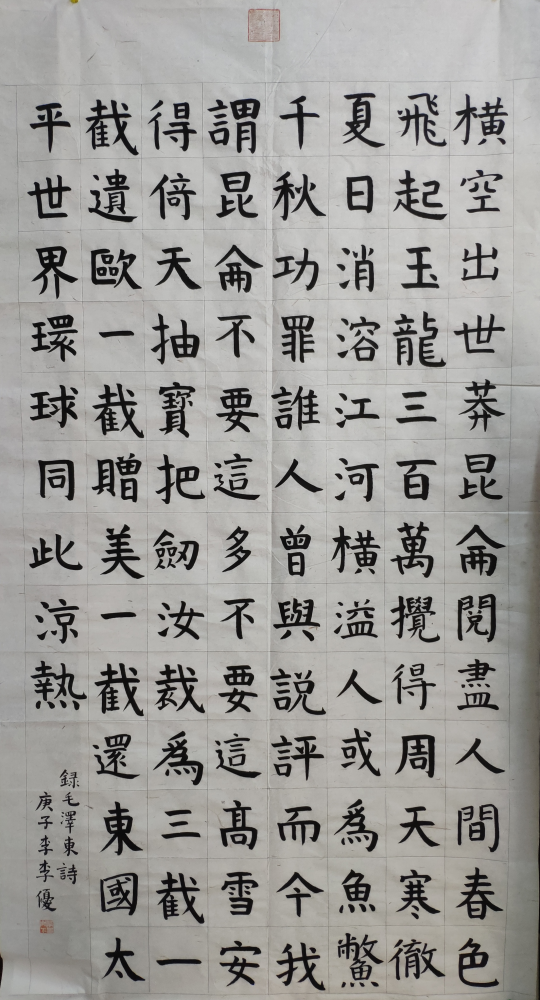 橫空出世莽昆侖閱盡人間春色
飛起玉龍三百萬攪得周天寒徹
夏日消溶江河橫溢人或爲魚鱉
千秋功罪誰人曾與說評而今我
謂昆侖不要這多不要這髙雪安
得倚天抽寶把劒汝裁爲三截一
截遺歐一截贈美一截還東國太
平世界環球同此涼熱
録毛澤東詩
庚子李李優